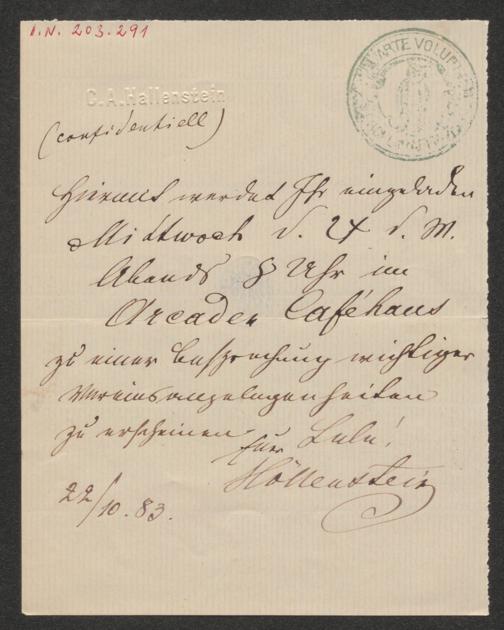 I.N. 203.291
ARTE VOLUP
C.A.Hallenstein
(confidentiell)
Hiermit werdet Ihr eingeladen
Mittwoch d. 24 d. M.
Abends 8 Uhr im
Arcaden Caféhaus
zu einer Besprechung wichtiger
Vereinsangelegenheiten
zu erscheinen. Lulu!
Euer
Höllenstein
22/10.83.